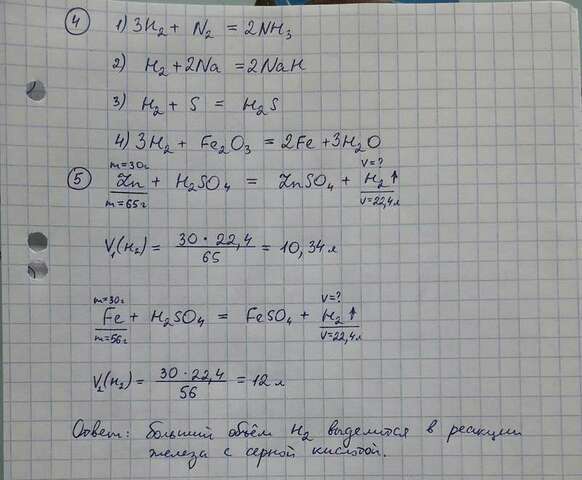 ④ 1) 3H₂ + N₂ = 2NH₃
2) H₂ + 2Na = 2NaH
3) H₂ + S = H₂S
4) 3H₂ + Fe₂O₃ = 2Fe + 3H₂O
m=30г V=?
⑤ Zn + H₂SO₄ = ZnSO₄ + H₂↑
m=65г V=22,4л
V₁(H₂) = 30 · 22,4 / 65 = 10,34 л
m=30г V=?
Fe + H₂SO₄ = FeSO₄ + H₂↑
m=56г V=22,4л
V₂(H₂) = 30 · 22,4 / 56 = 12 л
Ответ: больший объём H₂ выделится в реакции
железа с серной кислотой.